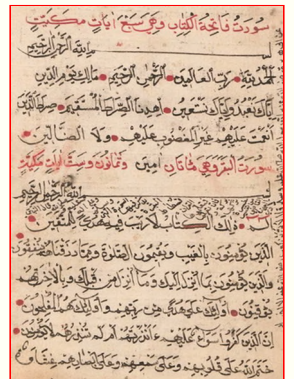 سورت فاتحة الكتاب وهي سبع ايات مكية
بسم الله الرحمن الرحيم
الحمد لله رب العالمين الرحمن الرحيم مالك يوم الدين
اياك نعبد واياك نستعين اهدنا الصراط المستقيم صراط الذين
انعمت عليهم غير المغضوب عليهم ولا الضالين
سورت البقرة وهي مائتان امين وثمانون وست ايات مكية
بسم الله الرحمن الرحيم
الم ذلك الكتاب لا ريب فيه هدى للمتقين
الذين يؤمنون بالغيب ويقيمون الصلوة ومما رزقناهم ينفقون
والذين يؤمنون بما انزل اليك وما انزل من قبلك وبالاخرة هم
يوقنون اولئك على هدى من ربهم واولئك هم المفلحون
ان الذين كفروا سواء عليهم ءانذرتهم ام لم تنذرهم لا يؤمنون
ختم الله على قلوبهم وعلى سمعهم وعلى ابصارهم غشاوة